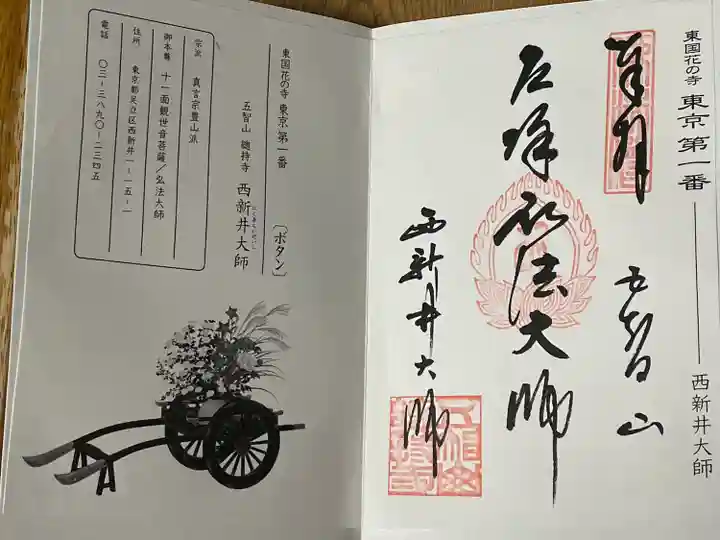 東国花の寺 東京第一番 西新井大師
奉拝
五智山
厄除弘法大師
西新井大師
東国花の寺 東京第一番 〔ボタン〕
五智山 總持寺 西新井大師
にしあらいだいし
宗派 真言宗豊山派
御本尊 十一面観世音菩薩/弘法大師
住所 東京都足立区西新井一-一五-一
電話 〇三-三八九〇-二三四五